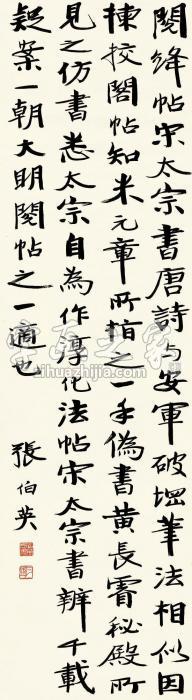 閱絳帖宋太宗書唐詩与安軍破堽筆法相似因
揀挍閣帖知米元章所指之一手偽書黃長睿秘殿所
見之仿書悉太宗自為作淳化法帖宋太宗書辨千載
疑案一朝大明閱帖之一適也
張伯英
zihuazhijia.com